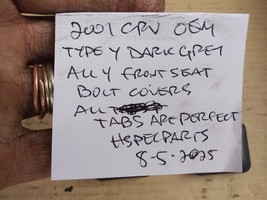 2001 CRV OEM
TYPE Y DARK GREY
ALL 4 FRONT SEAT
BOLT COVERS
ALL
TABS ARE PERFECT
HSPEC PARTS
8-5-2025